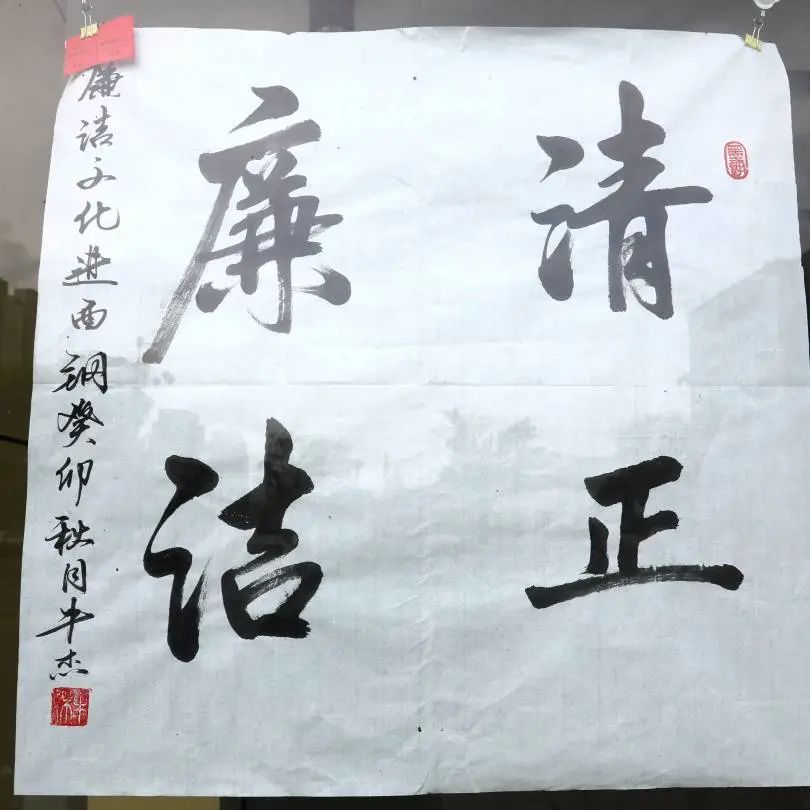 清正
廉洁
廉洁文化进西钢癸卯秋月牛杰